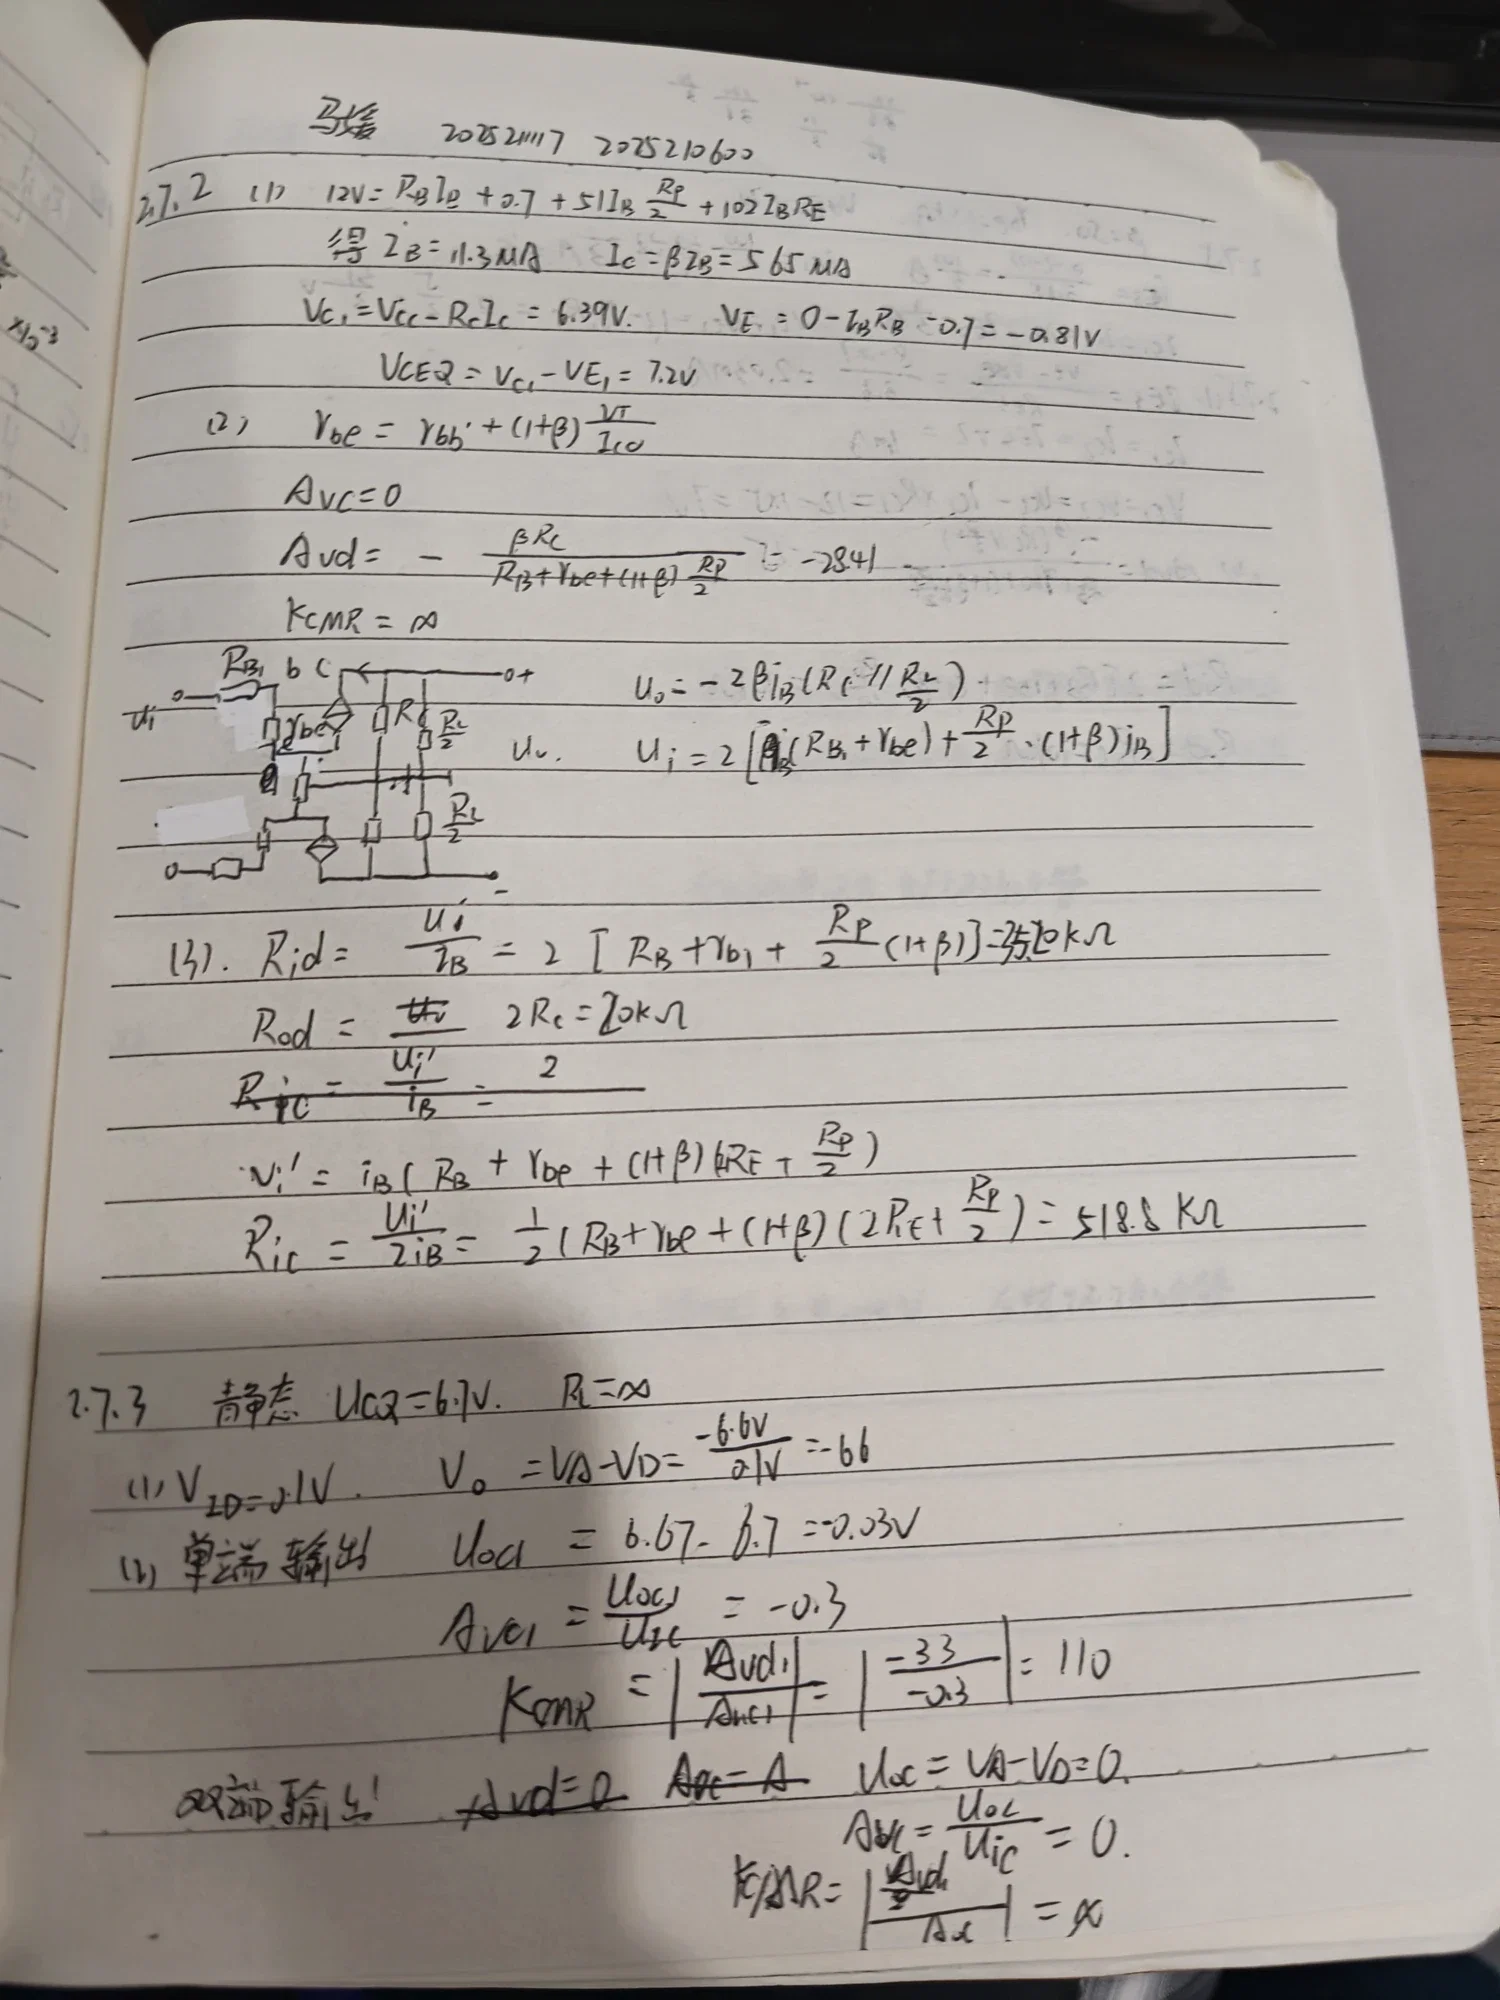 2025211117 2025210600
2.7.2 (1) 12V = RBIB + 0.7 + 51IB RP/2 + 102IBRE
得 IB = 11.3MA IC = βIB = 565MA
VC1 = VCC - RCIC = 6.39V. VE1 = 0 - IBRB - 0.7 = -0.81V
VCEQ = VC1 - VE1 = 7.2V
(2) rbe = rbb' + (1+β) VT/ICQ
AVC = 0
AVd = - βRC/(RB+rbe+(1+β)RP/2) = -28.41
KCMR = ∞
RB1 b c 0+
uo = -2βiB(RC // RL/2)
ui rbe RC RL/2
ui = 2[iB(RB1+rbe) + RP/2 · (1+β)iB]
e
RL/2
-
(3). Rid = ui/IB = 2 [RB + rb1 + RP/2 (1+β)] = kΩ
Rod = 2RC = 20kΩ
Ric = ui'/iB = 2
vi' = iB(RB + rbe + (1+β)(2RE + RP/2)
Ric = ui'/2iB = 1/2 (RB + rbe + (1+β)(2RE + RP/2) = 518.8 KΩ
2.7.3 静态 UCQ = 6.7V. RL = ∞
(1) VID = 0.1V. Vo = VA - VD = -6.6V/0.1V = -66
(2) 单端输出 Uoc1 = 6.67 - 6.7 = -0.03V
AVC1 = Uoc1/UIC = -0.3
KCMR = |AVd1/AVC1| = |-33/-0.3| = 110
双端输出 AVd = 0 Uoc = VA - VD = 0.
AVC = Uoc/Uic = 0.
KCMR = |AVd/AC| = ∞